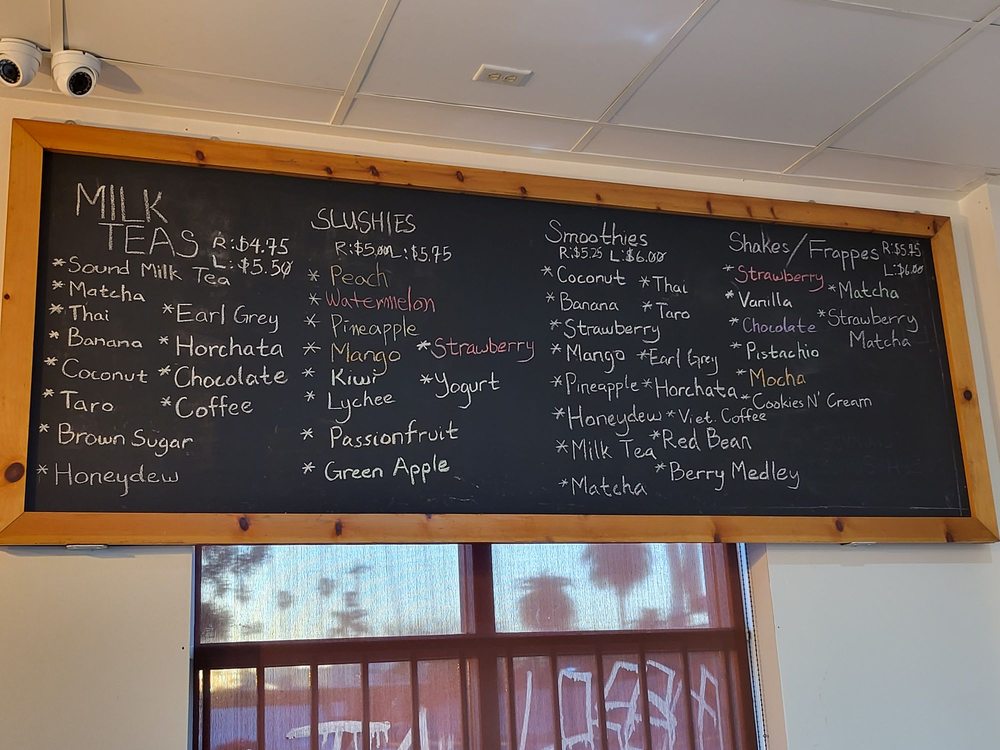 MILK
TEAS R:$4.75
L:$5.50
*Sound Milk Tea
*Matcha
*Thai
*Banana
*Coconut
*Taro
*Brown Sugar
*Honeydew
*Earl Grey
*Horchata
*Chocolate
*Coffee
SLUSHIES
R:$5.00 L:$5.75
*Peach
*Watermelon
*Pineapple
*Mango
*Kiwi
*Lychee
*Passionfruit
*Green Apple
*Strawberry
*Yogurt
Smoothies
R:$5.25 L:$6.00
*Coconut
*Banana
*Strawberry
*Mango
*Pineapple
*Honeydew
*Milk Tea
*Matcha
*Thai
*Taro
*Earl Grey
*Horchata
*Viet. Coffee
*Red Bean
*Berry Medley
Shakes/Frappes R:$5.25
L:$6.00
*Strawberry
*Vanilla
*Chocolate
*Pistachio
*Mocha
*Cookies N' Cream
*Matcha
*Strawberry
Matcha